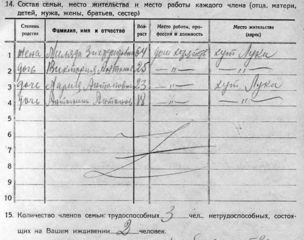 14. Состав семьи, место жительства и место работы каждого члена (отца, матери, детей, мужа, жены, братьев, сестер)
Степень родства Фамилия, имя и отчество Возраст Место работы, профессия и должность Место жительства
1 жена 54 дом хозяйка хут Лука
2 дочь Виктория 25 —"— —"—
3 дочь Мария Антоновна 23 —"— хут Лука
4 дочь Антоновна 18 —"— —"—
5
6
7
8
9
10
15. Количество членов семьи: трудоспособных 3 чел., нетрудоспособных, состоя-
щих на Вашем иждивении 2 человек.